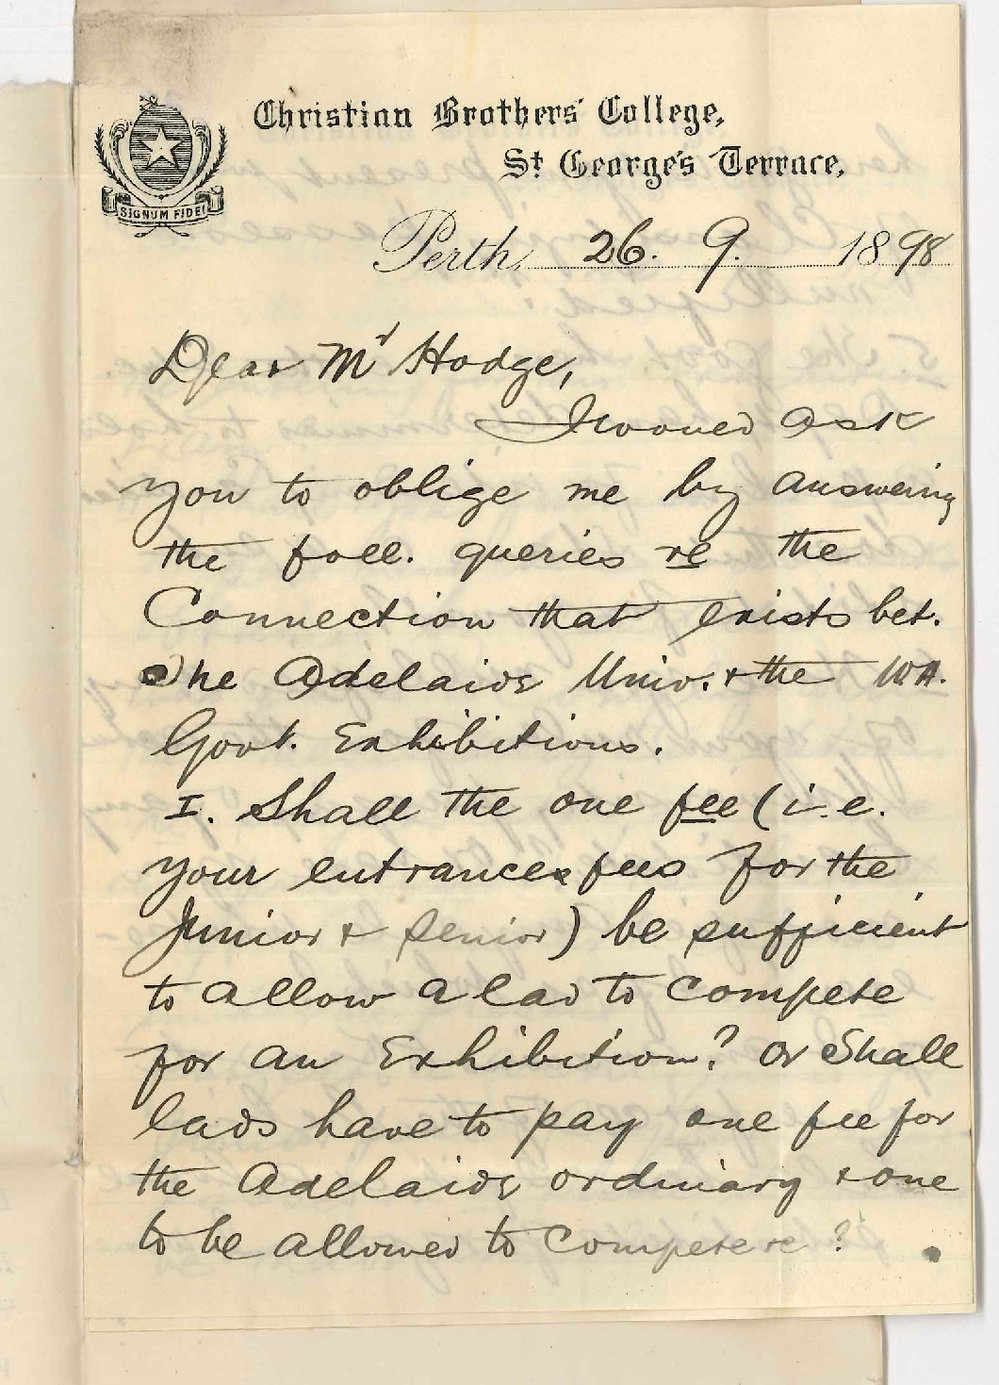 Christian Brothers' College,
St George's Terrace,
SIGNUM FIDEI
Perth, 26. 9. 1898
Dear Mr Hodge,
I would ask
you to oblige me by answering
the foll. queries re the
Connection that exists bet.
The Adelaide Univ. & the WA.
Govt. Exhibitions.
I. Shall the one fee (i.e.
your entrance fees for the
Junior & Senior) be sufficient
to allow a lad to compete
for an Exhibition? Or Shall
lads have to pay one fee for
the Adelaide ordinary & one
to be allowed to compete ?